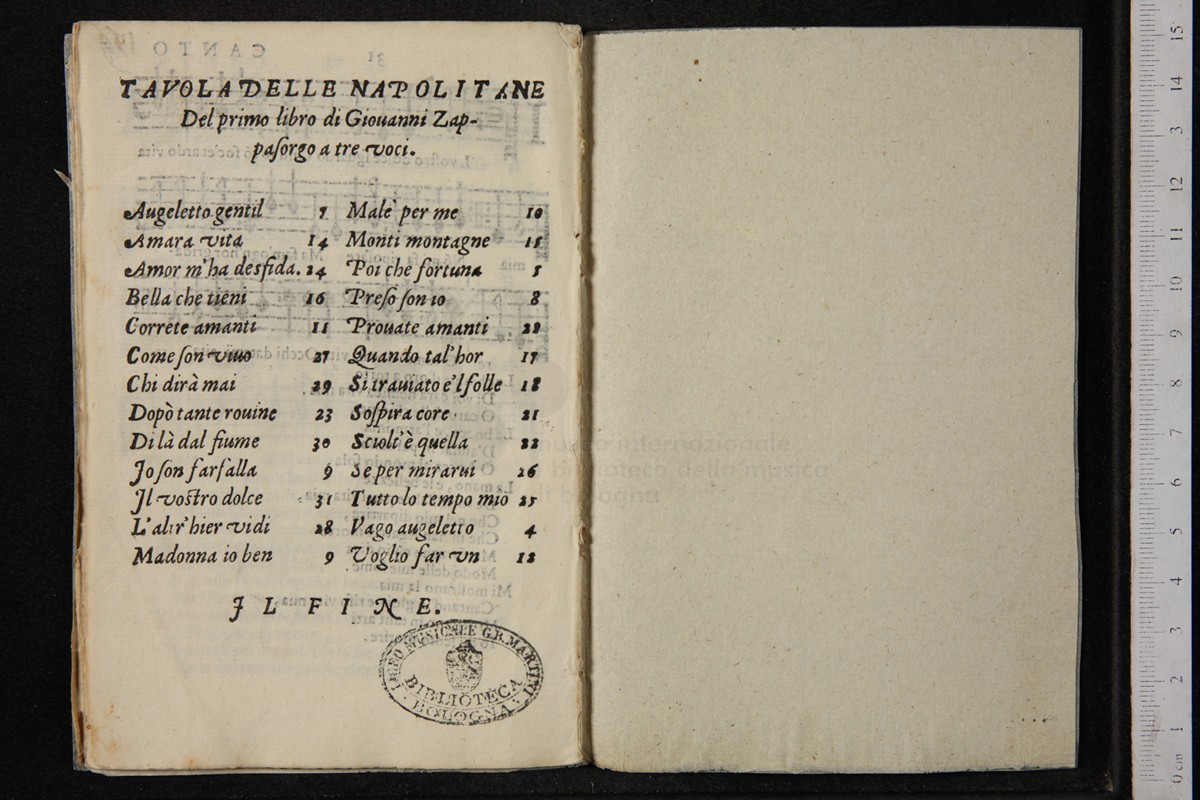 TAVOLA DELLE NAPOLITANE
Del primo libro di Giouanni Zap-
paſorgo a tre voci.
Augeletto gentil 7
Amara vita 14
Amor m'ha desfida. 24
Bella che tieni 16
Correte amanti 11
Come ſon viuo 27
Chi dirà mai 29
Dopò tante rouine 23
Di là dal fiume 30
Jo ſon farfalla 9
Jl voſtro dolce 31
L'altr'hier vidi 28
Madonna io ben 9
Mal'è per me 10
Monti montagne 15
Poi che fortuna 5
Preſo ſon io 8
Prouate amanti 22
Quando tal'hor 17
Si trauiato è'l folle 18
Soſpira core 21
Sciolt'è quella 22
Se per mirarui 26
Tutto lo tempo mio 25
Vago augeletto 4
Voglio far vn 12
JL FINE.
LICEO MUSICALE G.B. MARTINI
BIBLIOTECA
BOLOGNA
museo internazionale
e biblioteca della musica
di bologna
CANTO
31
0 cm 1 2 3 4 5 6 7 8 9 10 11 12 13 14 15